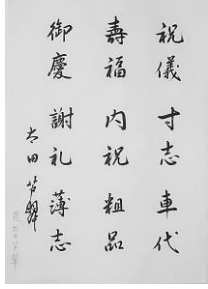 祝儀 寸志 車代
壽福 内祝 粗品
御慶 謝礼 薄志